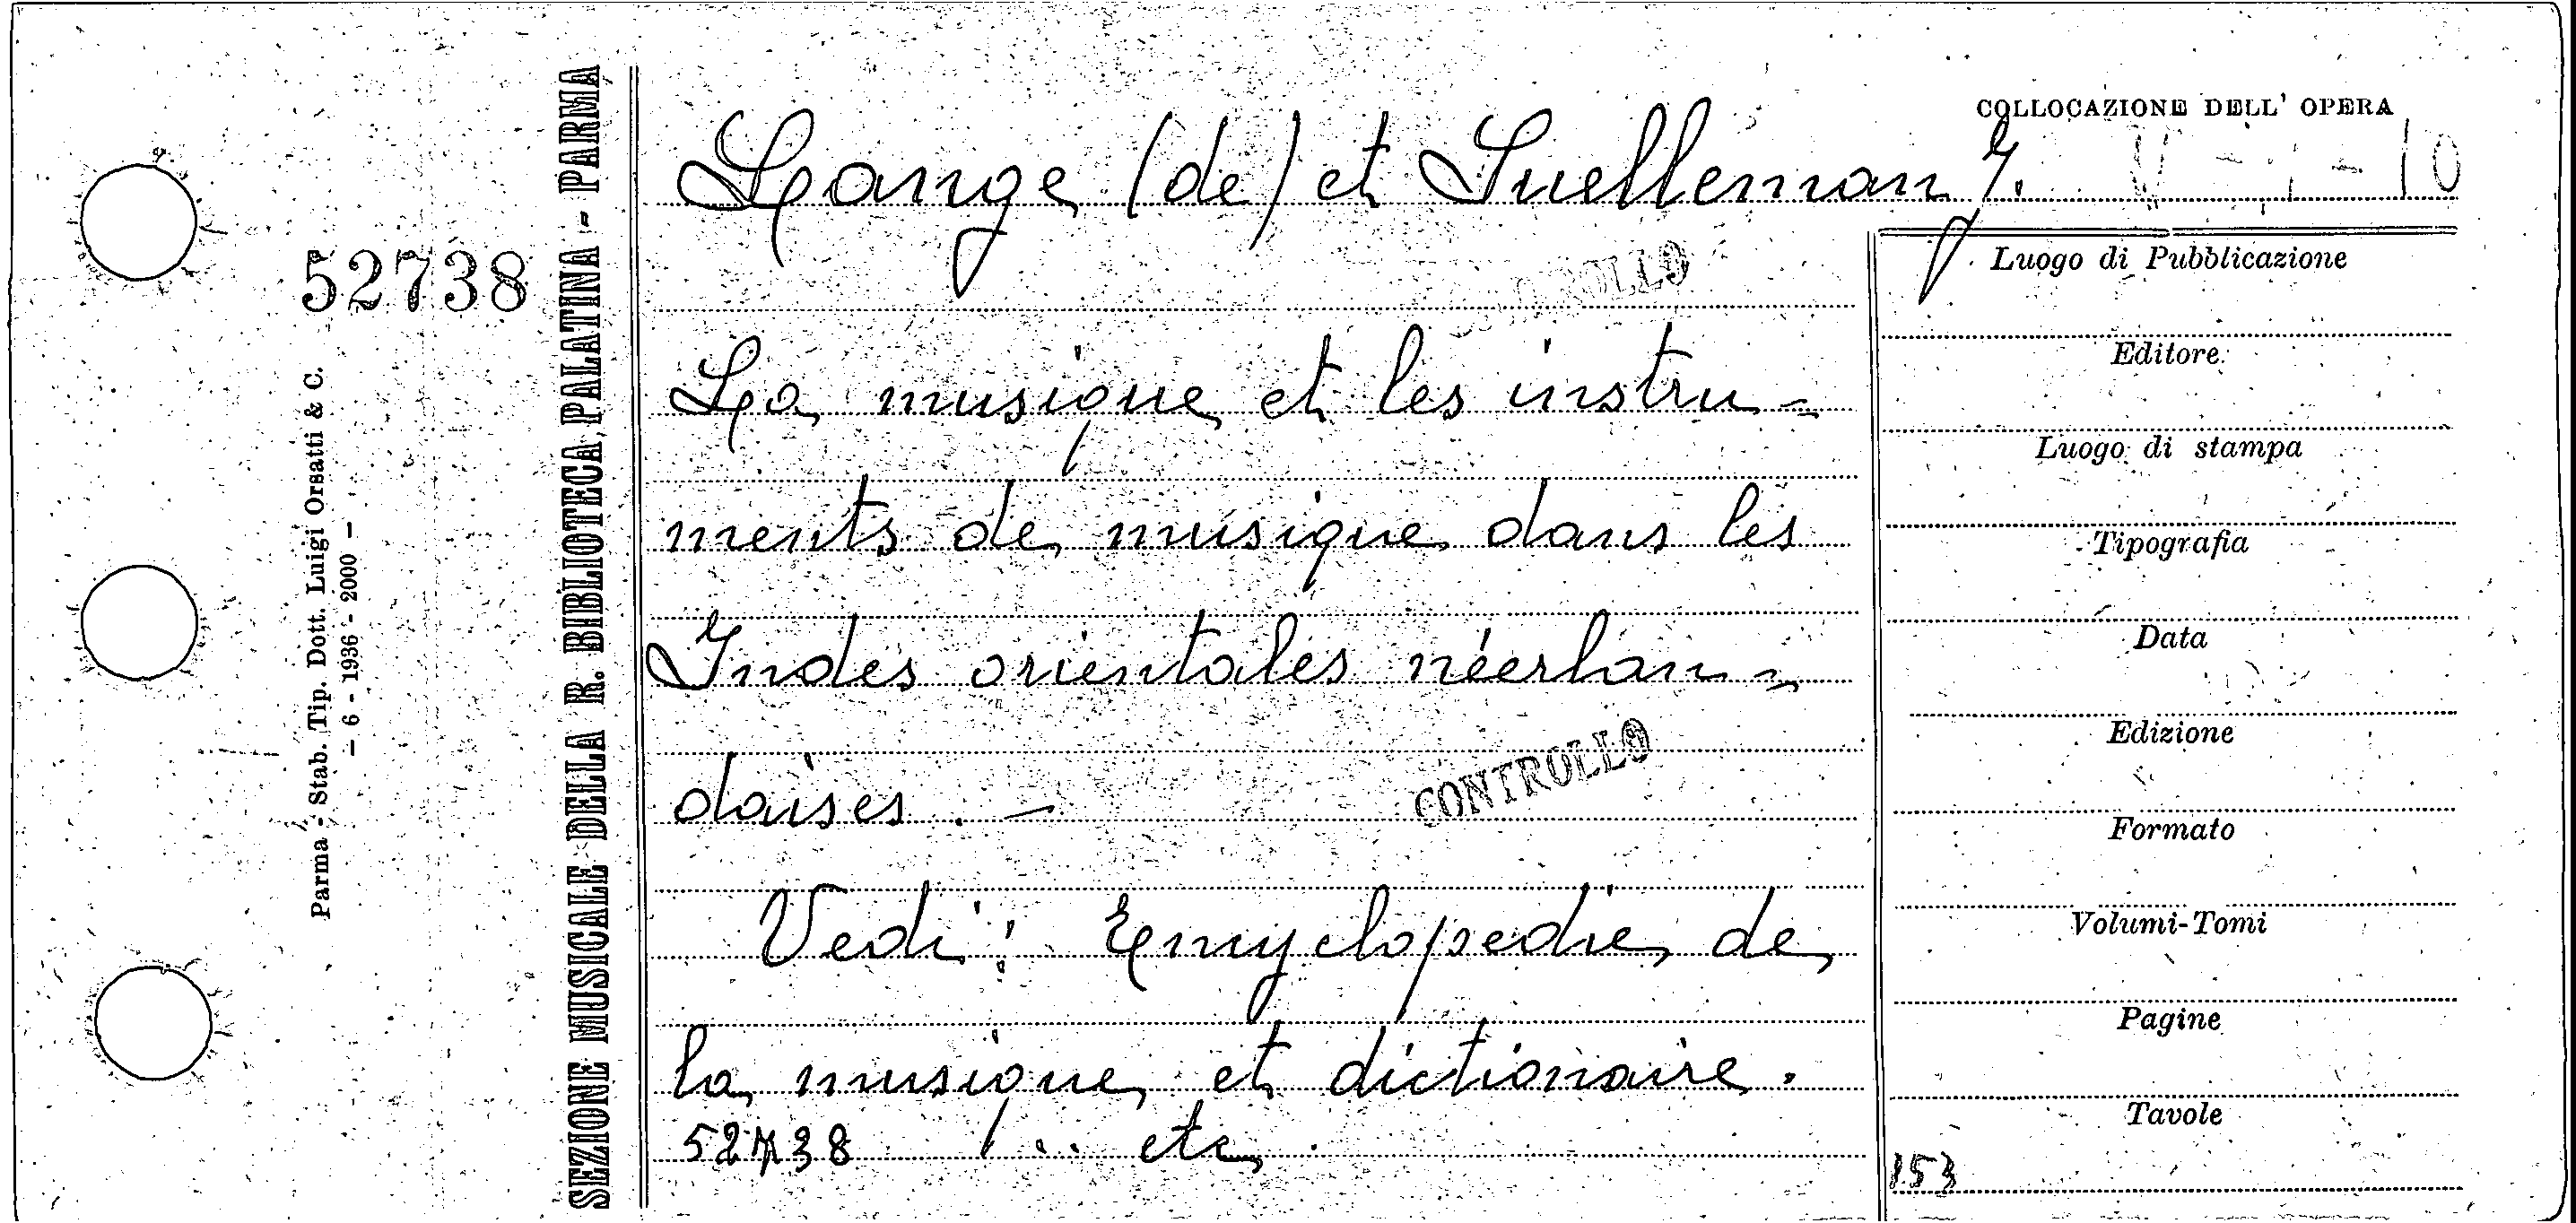 COLLOCAZIONE DELL' OPERA
Lange (de) et Snelleman J.
52738
SEZIONE MUSICALE DELLA R. BIBLIOTECA PALATINA - PARMA
Parma - Stab. Tip. Dott. Luigi Orsatti & C.
- 6 - 1936 - 2000 -
La musique et les instru-
ments de musique dans les
Indes orientales néerlan-
daises. -
CONTROLLO
CONTROLLO
Vedi: Emyclopedie de
la musique et dictionaire.
52738 ... etc.
Luogo di Pubblicazione
Editore
Luogo di stampa
Tipografia
Data
Edizione
Formato
Volumi-Tomi
Pagine
Tavole
153